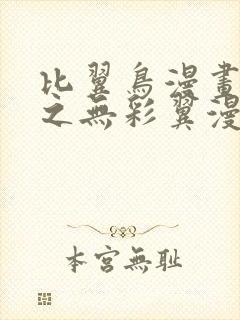 比翼鳥漫畫
之無彩翼漫
本宮無耻